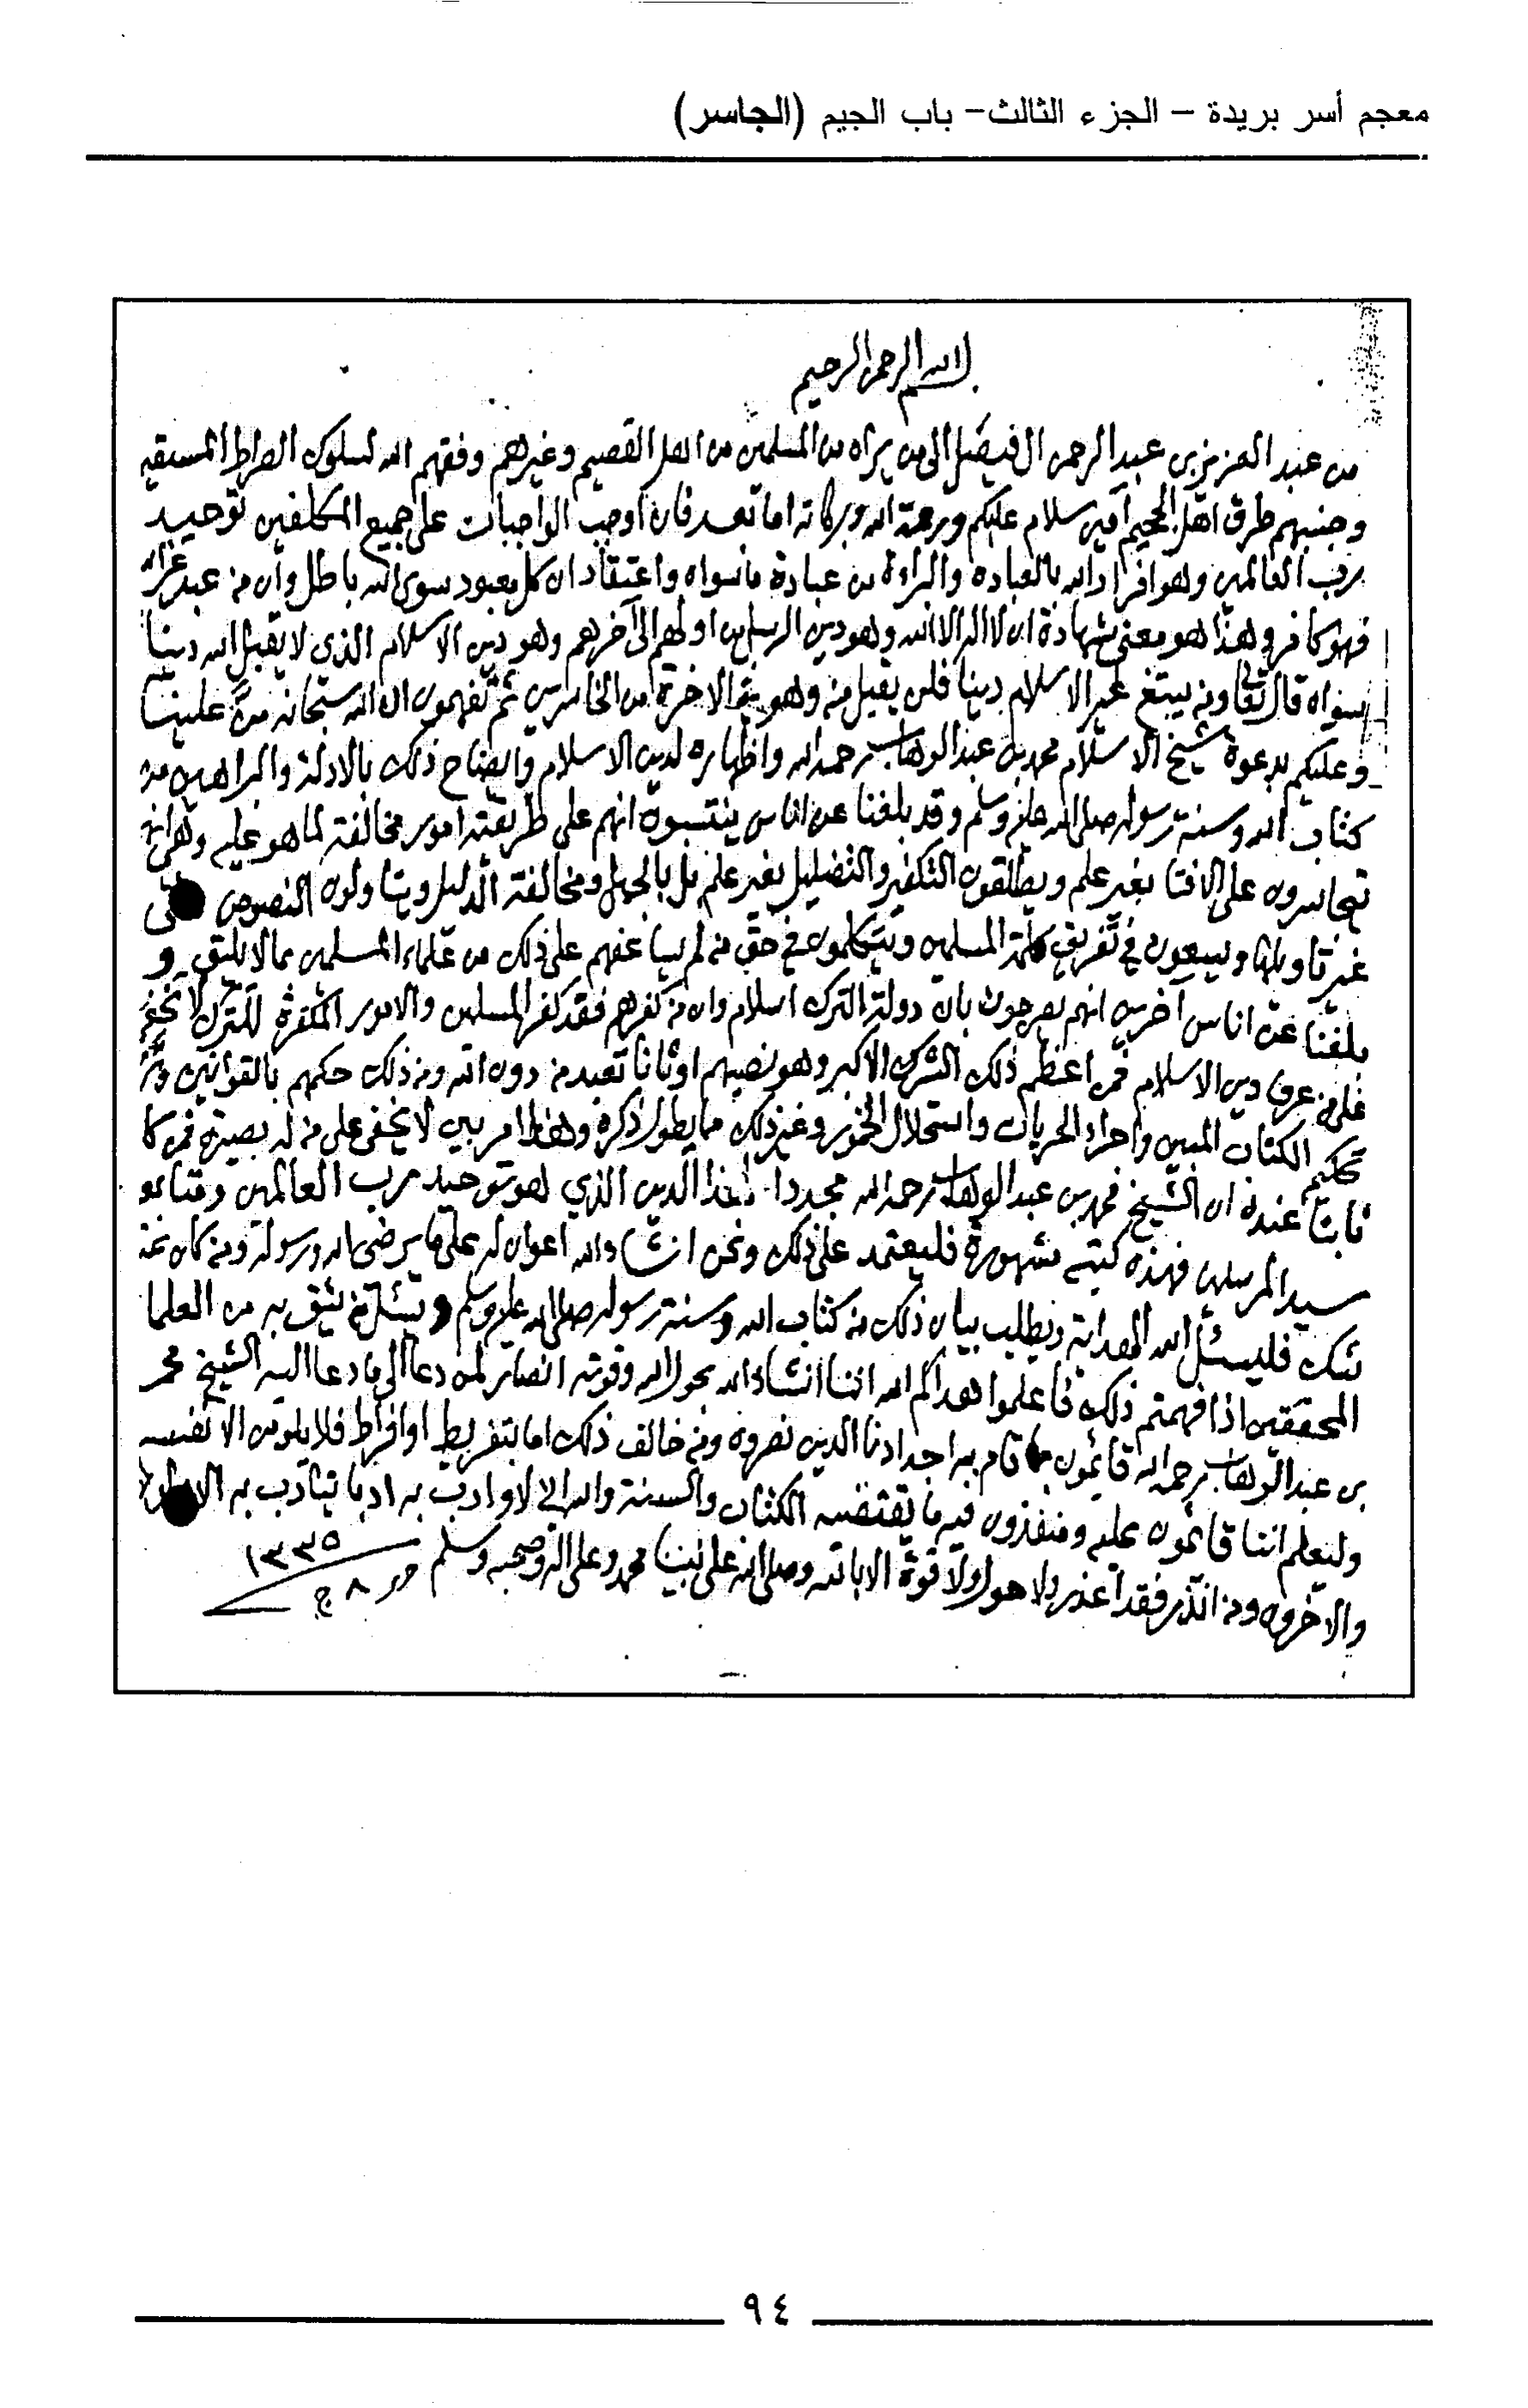 معجم أسر بريدة – الجزء الثالث– باب الجيم (الجاسر)
بسم الله الرحمن الرحيم
من عبد العزيز بن عبد الرحمن ال فيصل الى من يراه من المسلمين من اهل القصيم وغيرهم وفقهم الله لسلوك الصراط المستقيم
وجنبهم طرق اهل الجحيم آمين سلام عليكم ورحمة الله وبركاته اما بعد فان اوجب الواجبات على جميع المكلفين توحيد
رب العالمين وهو افراد الله بالعباده والبراءة من عبادة ما سواه واعتقاد ان كل معبود سوى الله باطل وان من عبد غير الله
فهو كافر وهذا هو معنى شهادة ان لا اله الا الله وهو دين الرسل من اولهم الى آخرهم وهو دين الاسلام الذي لا يقبل الله دينا
سواه قال تعالى ومن يبتغ غير الاسلام دينا فلن يقبل منه وهو في الاخرة من الخاسرين ثم تفهمون ان الله سبحانه منّ علينا
وعليكم بدعوة شيخ الاسلام محمد بن عبد الوهاب رحمه الله واظهاره لدين الاسلام وايضاح ذلك بالادلة والبراهين من
كتاب الله وسنة رسوله صلى الله عليه وسلم وقد بلغنا عن اناس ينتسبون انهم على طريقته امور مخالفة لما هو عليه وهي انهم
تجاسرون على الافتا بغير علم ويطلقون التكفير والتضليل بغير علم بل بالجهل ومخالفة الدليل ويتاولون النصوص على
غير تاويلها ويسعون في تفريق كلمة المسلمين ويتكلمون في حق من لم يساعفهم على ذلك من علماء المسلمين بما لا يليق و
بلغنا عن اناس آخرين انهم يصرحون بان دولة الترك اسلام وان من كفرهم فقد كفر المسلمين والامور المكفرة للترك لا تخفى
على من عرف دين الاسلام فمن اعظم ذلك الشرك الاكبر وهو نصبهم اوثانا تعبد من دون الله ومن ذلك حكمهم بالقوانين
تحكيم الكتاب المبين واجراء الحريات واستحلال الخمور وغير ذلك مما يطول ذكره وهذا امر بين لا يخفى على من له بصيرة فمن كا
ثابتا عنده ان الشيخ محمد بن عبد الوهاب رحمه الله مجددا لهذا الدين الذي هو توحيد رب العالمين ومتابعة
سيد المرسلين فهذه كتبه مشهورة فليعتمد على ذلك ونحن انشاء الله اعوان له على ما يرضى الله ورسوله ومن كان عنده
شك فليسئل الله الهداية ويطلب بيان ذلك من كتاب الله وسنة رسوله صلى الله عليه وسلم ويسئل من يثق به من العلما
المحققين اذا فهمتم ذلك فاعلموا هداكم الله اننا انشاء الله بحول الله وقوته انصار لمن دعا الى ما دعا اليه الشيخ محمد
بن عبد الوهاب رحمه الله قائمون بما قام به اجدادنا الذين نصروه ومن خالف ذلك اما بتفريط او افراط فلا يلومن الا نفسه
وليعلم اننا قائمون عليه ومنفذون فيه ما يقتضيه الكتاب والسنة والله اني لاوادب به ادبا يتادب به الاولون
والاخرون ومن انذر فقد اعذر ولا حول ولا قوة الا بالله وصلى الله على نبينا محمد وعلى اله وصحبه وسلم حرر ٨ ج
١٣٣٥
٩٤